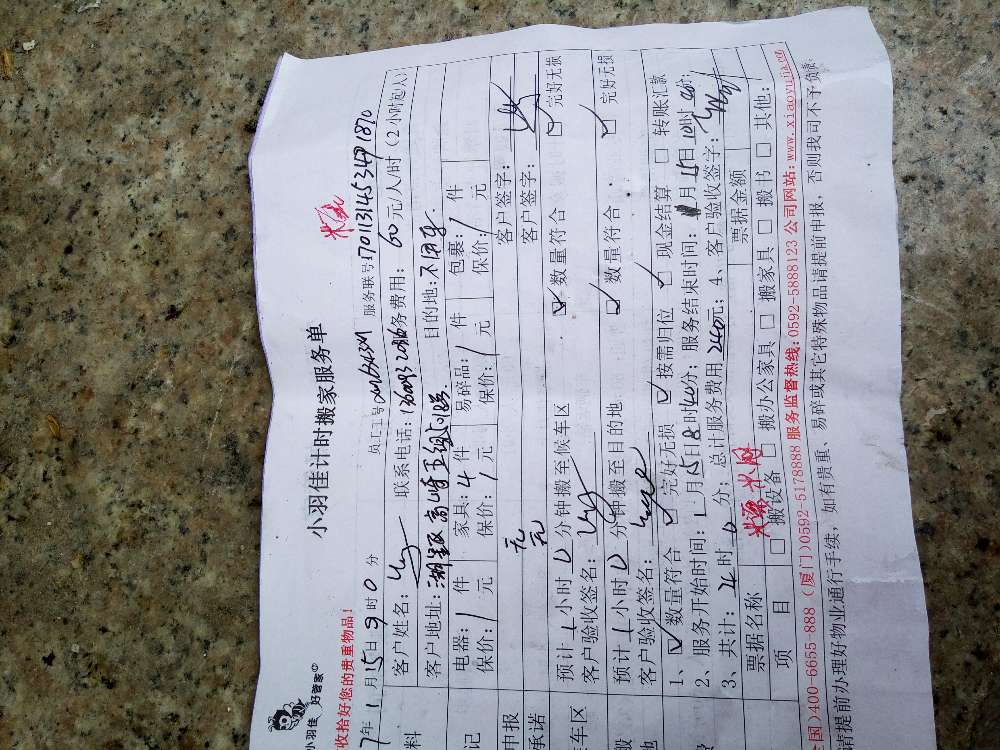 小羽佳 好管家
小羽佳计时搬家服务单
收拾好您的贵重物品!
7年1月15日9时0分 员工工号 服务联号1701131453471870
客户姓名: 联系电话: 务费用:60元/人/时(2小时起
料 客户地址: 目的地:不用车
电器:1件 家具:4件 易碎品:1件 包裹:1件
记 保价:1元 保价:1元 保价:1元 保价:1元
申报 元 客户签字:
承诺 元 客户签字:
预计1小时0分钟搬至候车区 数量符合 完好无损
车区 客户验收签名:
般 预计1小时0分钟搬至目的地 数量符合 完好无损
地 客户验收签名:
1、数量符合 完好无损 按需归位 现金结算 转账汇款
2、服务开始时间:1月15日8时40分;服务结束时间:1月15日10时40分;
费 3、共计:2小时0分;总计服务费用240元;4、客户验收签字:
票据名称 票据金额
项目 搬设备 搬办公家具 搬家具 搬书 其他:
国)400-6655-888 (厦门)0592-5178888 服务监督热线:0592-5888123 公司网站:www.xiaoyujia.cn
请提前办理好物业通行手续,如有贵重、易碎或其它特殊物品请提前申报,否则我司不予负责